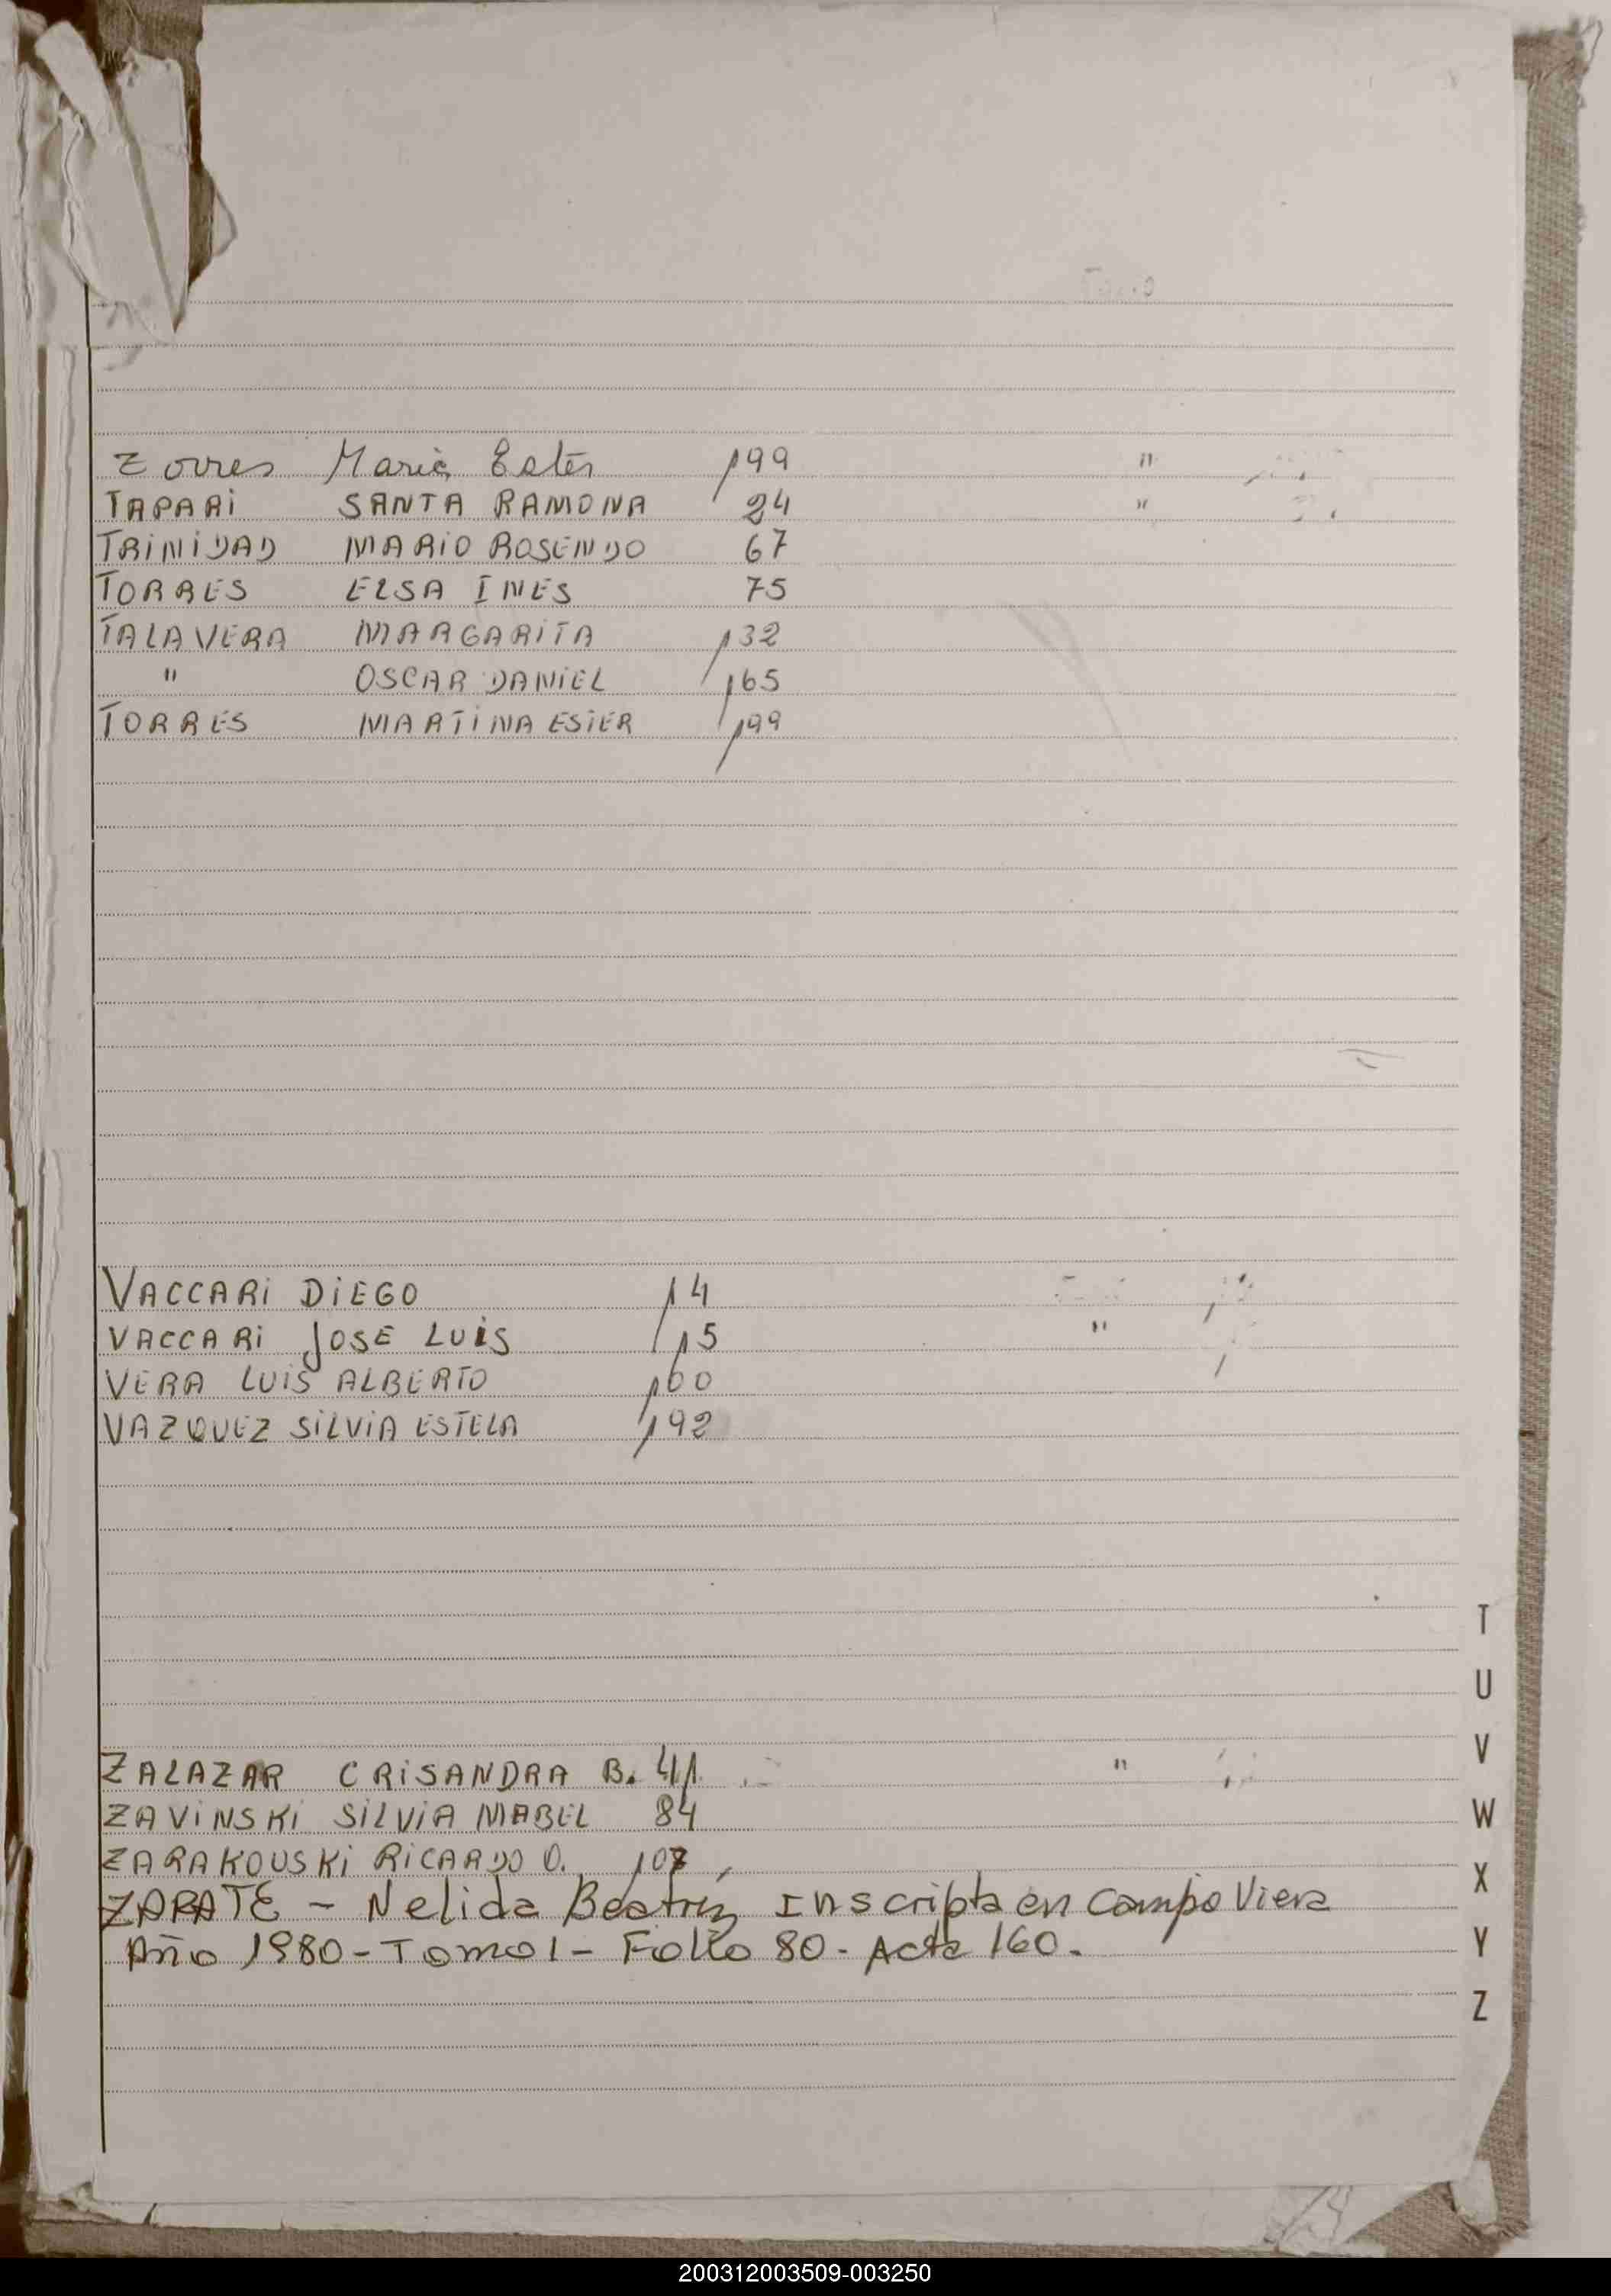 Torres Maria Ester 199 "
TAPARI SANTA RAMONA 24 "
TRINIDAD MARIO ROSENDO 67
TORRES ELSA INES 75
TALAVERA MARGARITA 132
" OSCAR DANIEL 165
TORRES MARTINA ESTER 199
VACCARI DIEGO 14
VACCARI JOSE LUIS 15 "
VERA LUIS ALBERTO 160
VAZQUEZ SILVIA ESTELA 192
T
U
V
ZALAZAR CRISANDRA B. 41 "
ZAVINSKI SILVIA MABEL 84
W
ZARAKOUSKI RICARDO O. 107
X
ZARATE - Nelida Beatriz Inscripta en Campo Viera
Año 1980 - Tomo 1 - Folio 80 - Acta 160.
Y
Z
200312003509-003250